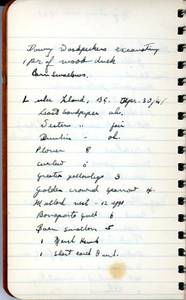 Downy Woodpeckers excavating
1 pr of wood duck
Barn swallows.
Lulu Island, B.C. Apr. 30/61
Least sandpiper ab.
Western " fair
Dunlin - ab.
Plover 8
curlew 5
Greater yellowlegs 3
Golden crowned sparrow 4
Mallard nest - 12 eggs
Bonaparte gull 6
Barn swallows 5
1 Marsh Hawk
1 short eared owl